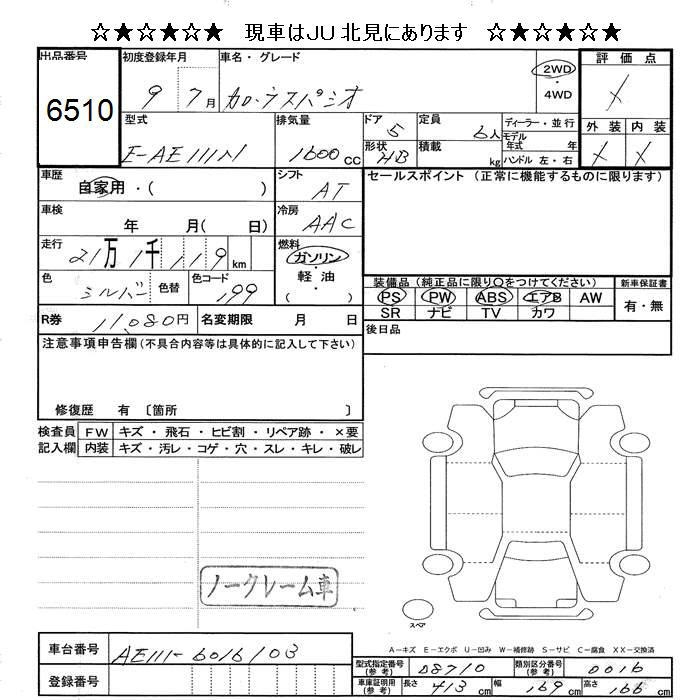 ☆★☆★☆★ 現車はJU北見にあります ☆★☆★☆★
出品番号 初度登録年月 車名・グレード 評価点
6510 9 7月 カローラスパシオ 2WD ・ 4WD
型式 排気量 ドア 定員 ディーラー・並行 外装 内装
E-AE111N 1600cc 5 6人 モデル年式 年
形状 HB 積載 kg ハンドル 左・右
車歴 自家用・( ) シフト AT セールスポイント (正常に機能するものに限ります)
車検 年 月( 日) 冷房 AAC
走行 21万1千119km 燃料 ガソリン・軽油・( )
色 シルバー 色替 色コード 199
装備品(純正品に限り○をつけてください) 新車保証書
PS PW ABS エアB AW 有・無
SR ナビ TV カワ
R券 11,080円 名変期限 月 日 後日品
注意事項申告欄(不具合内容等は具体的に記入して下さい)
修復歴 有 〔箇所 〕
検査員 FW キズ・飛石・ヒビ割・リペア跡・×要
記入欄 内装 キズ・汚レ・コゲ・穴・スレ・キレ・破レ
ノークレーム車
スペア
A-キズ E-エクボ U-凹み W-補修跡 S-サビ C-腐食 XX-交換済
車台番号 AE111-6016103 型式指定番号(参考) 08710 類別区分番号(参考) 0016
登録番号 車庫証明用(参考) 長さ 413cm 幅 169cm 高さ 166cm